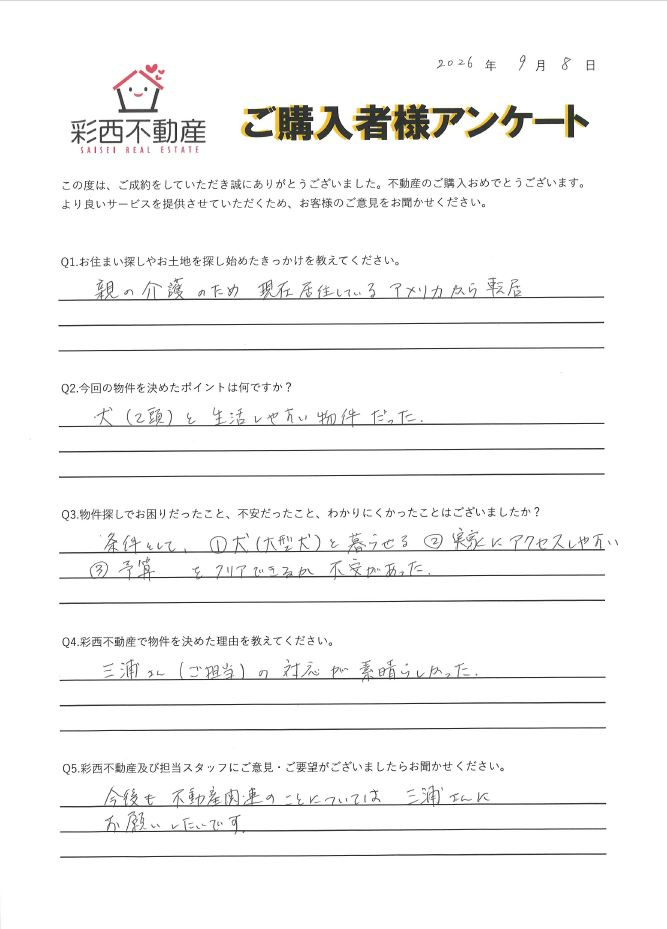 2026 年 9 月 8 日
彩西不動産
SAISEI REAL ESTATE
ご購入者様アンケート
この度は、ご成約をしていただき誠にありがとうございました。不動産のご購入おめでとうございます。
より良いサービスを提供させていただくため、お客様のご意見をお聞かせください。
Q1.お住まい探しやお土地を探し始めたきっかけを教えてください。
親の介護のため 現在居住しているアメリカから転居
Q2.今回の物件を決めたポイントは何ですか？
犬（2頭）と生活しやすい物件だった.
Q3.物件探しでお困りだったこと、不安だったこと、わかりにくかったことはございましたか？
条件として、①犬（大型犬）と暮らせる ②実家にアクセスしやすい
③予算 をクリアできるか不安があった.
Q4.彩西不動産で物件を決めた理由を教えてください。
三浦さん（ご担当）の対応が素晴らしかった.
Q5.彩西不動産及び担当スタッフにご意見・ご要望がございましたらお聞かせください。
今後も不動産関連のことについては 三浦さんに
お願いしたいです.